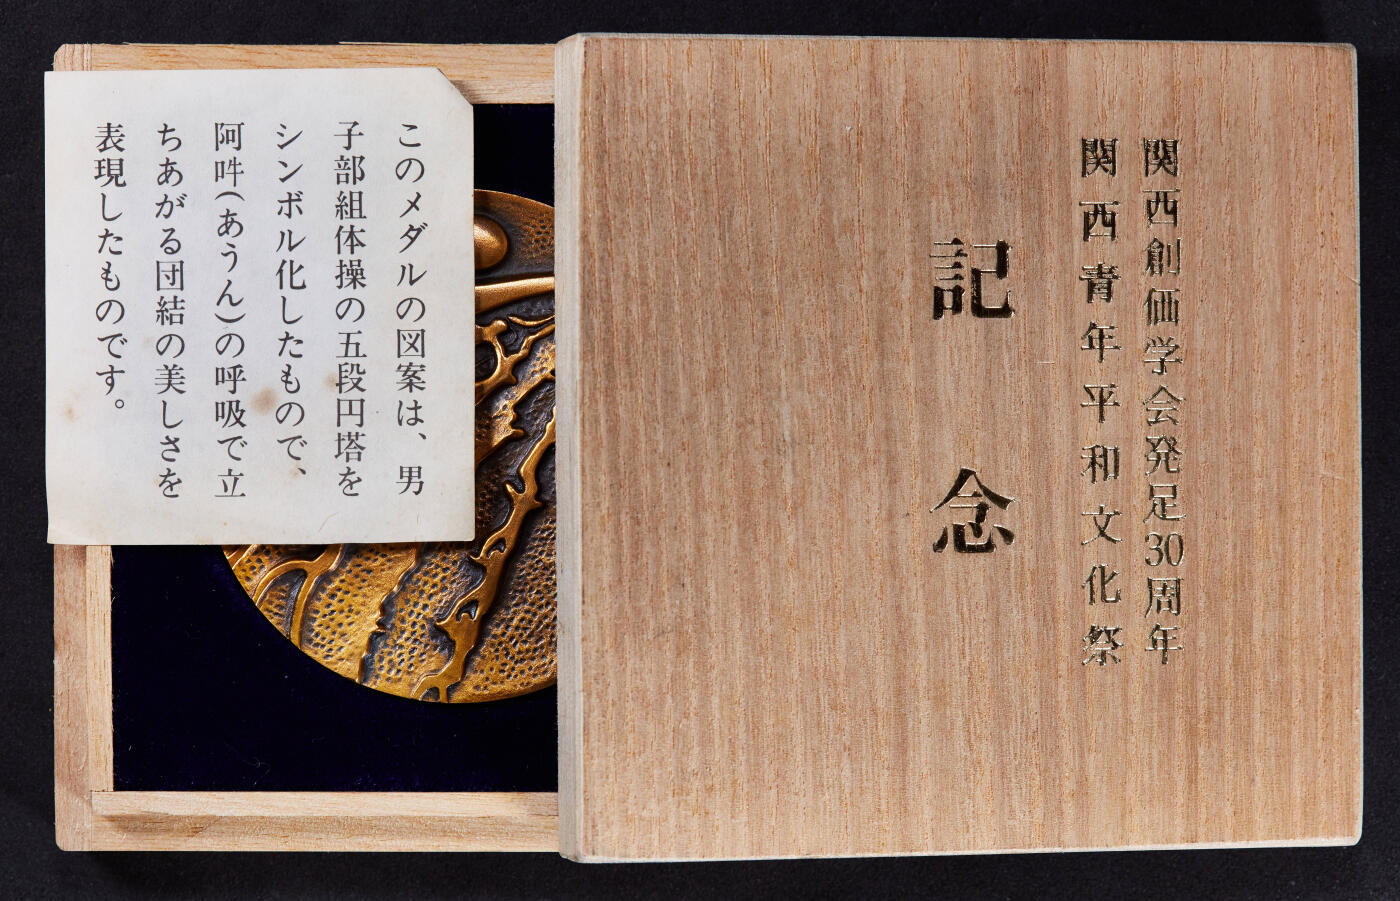 関西創価学会発足30周年
関西青年平和文化祭
記念
このメダルの図案は、男
子部組体操の五段円塔を
シンボル化したもので、
阿吽(あうん)の呼吸で立
ちあがる団結の美しさを
表現したものです。